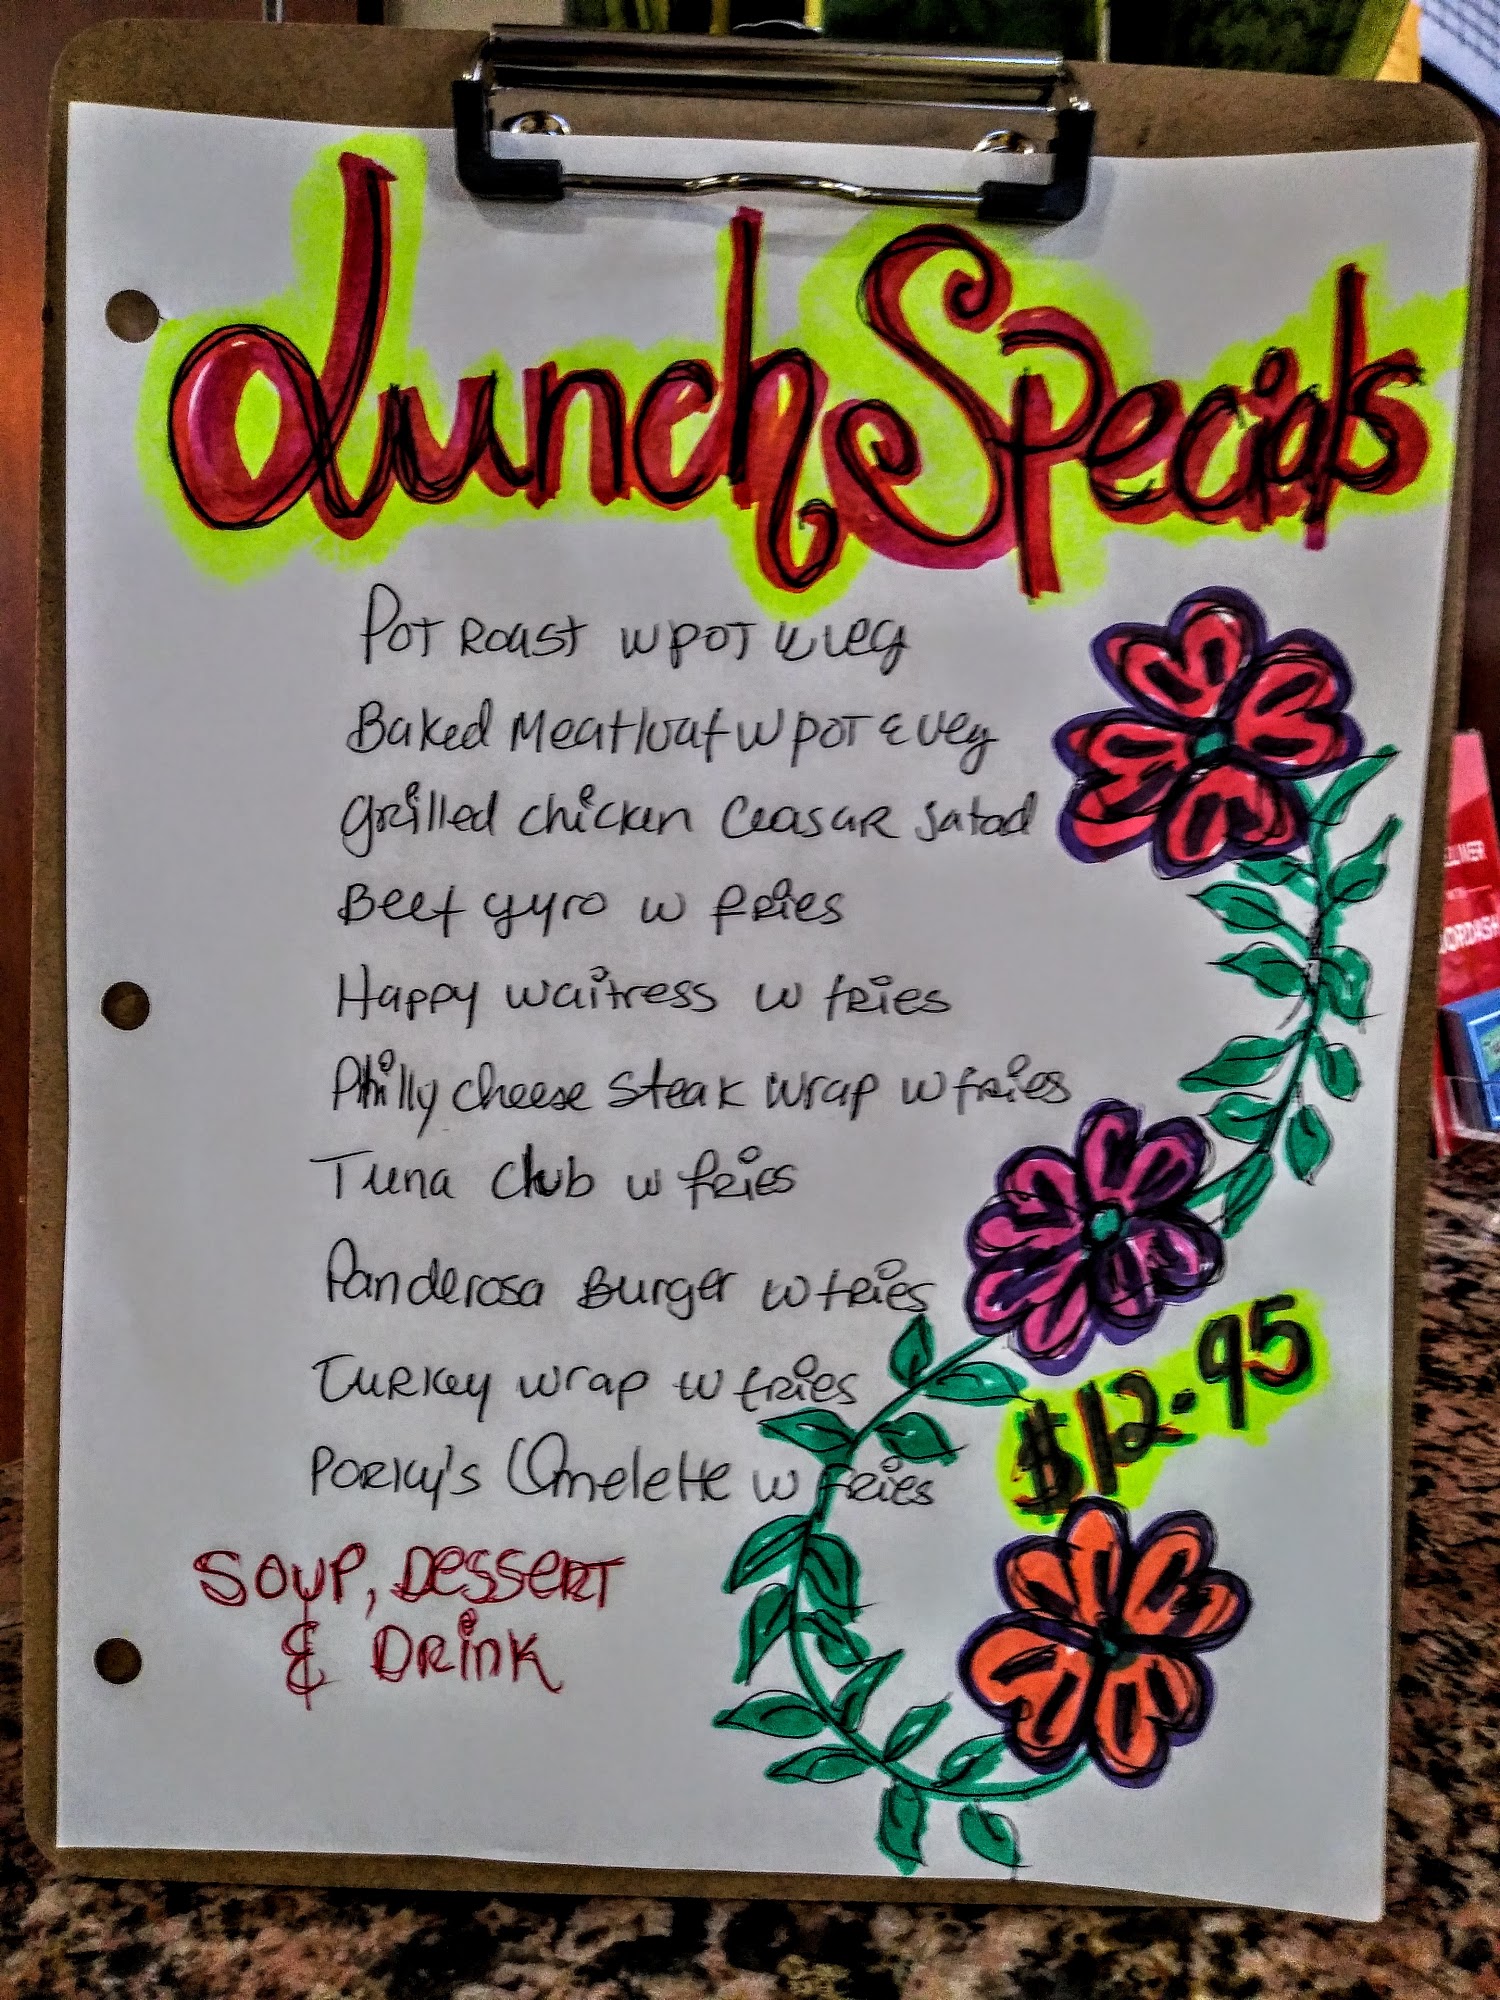 Lunch Specials
Pot Roast w pot & veg
Baked Meatloaf w pot & veg
Grilled chicken Ceasar salad
Beef gyro w fries
Happy waitress w fries
Philly cheese steak wrap w fries
Tuna Club w fries
Panderosa Burger w fries
Turkey wrap w fries
Porky's Omelette w fries
$12.95
Soup, Dessert
& Drink